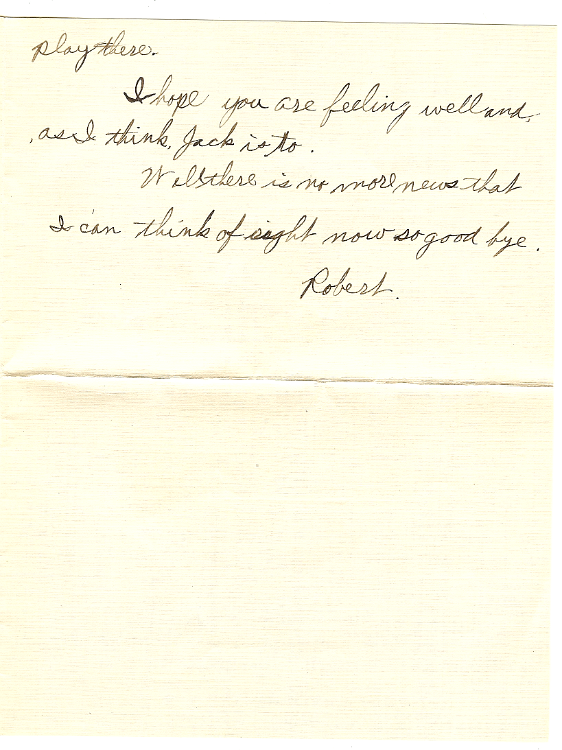 play there.
I hope you are feeling well and,
as I think, Jack is to.
Well there is no more news that
I can think of right now so good bye.
Robert.